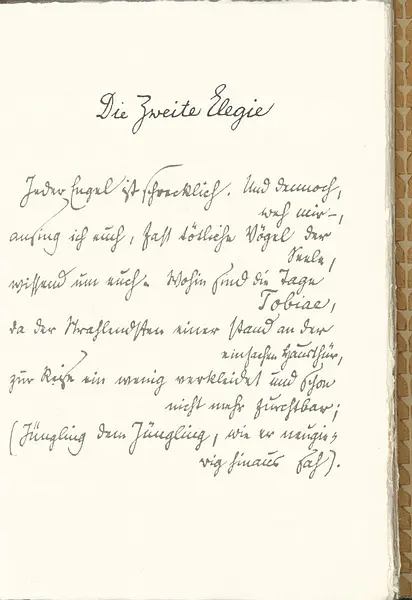 Die Zweite Elegie
Jeder Engel ist schrecklich. Und dennoch,
weh mir –,
ansing ich euch, fast tötliche Vögel der
Seele,
wissend um euch. Wohin sind die Tage
Tobiae,
da der Strahlendsten einer stand an der
einfachen Hausthür,
zur Reise ein wenig verkleidet und schon
nicht mehr furchtbar;
(Jüngling dem Jüngling, wie er neugie-
rig hinaus sah).